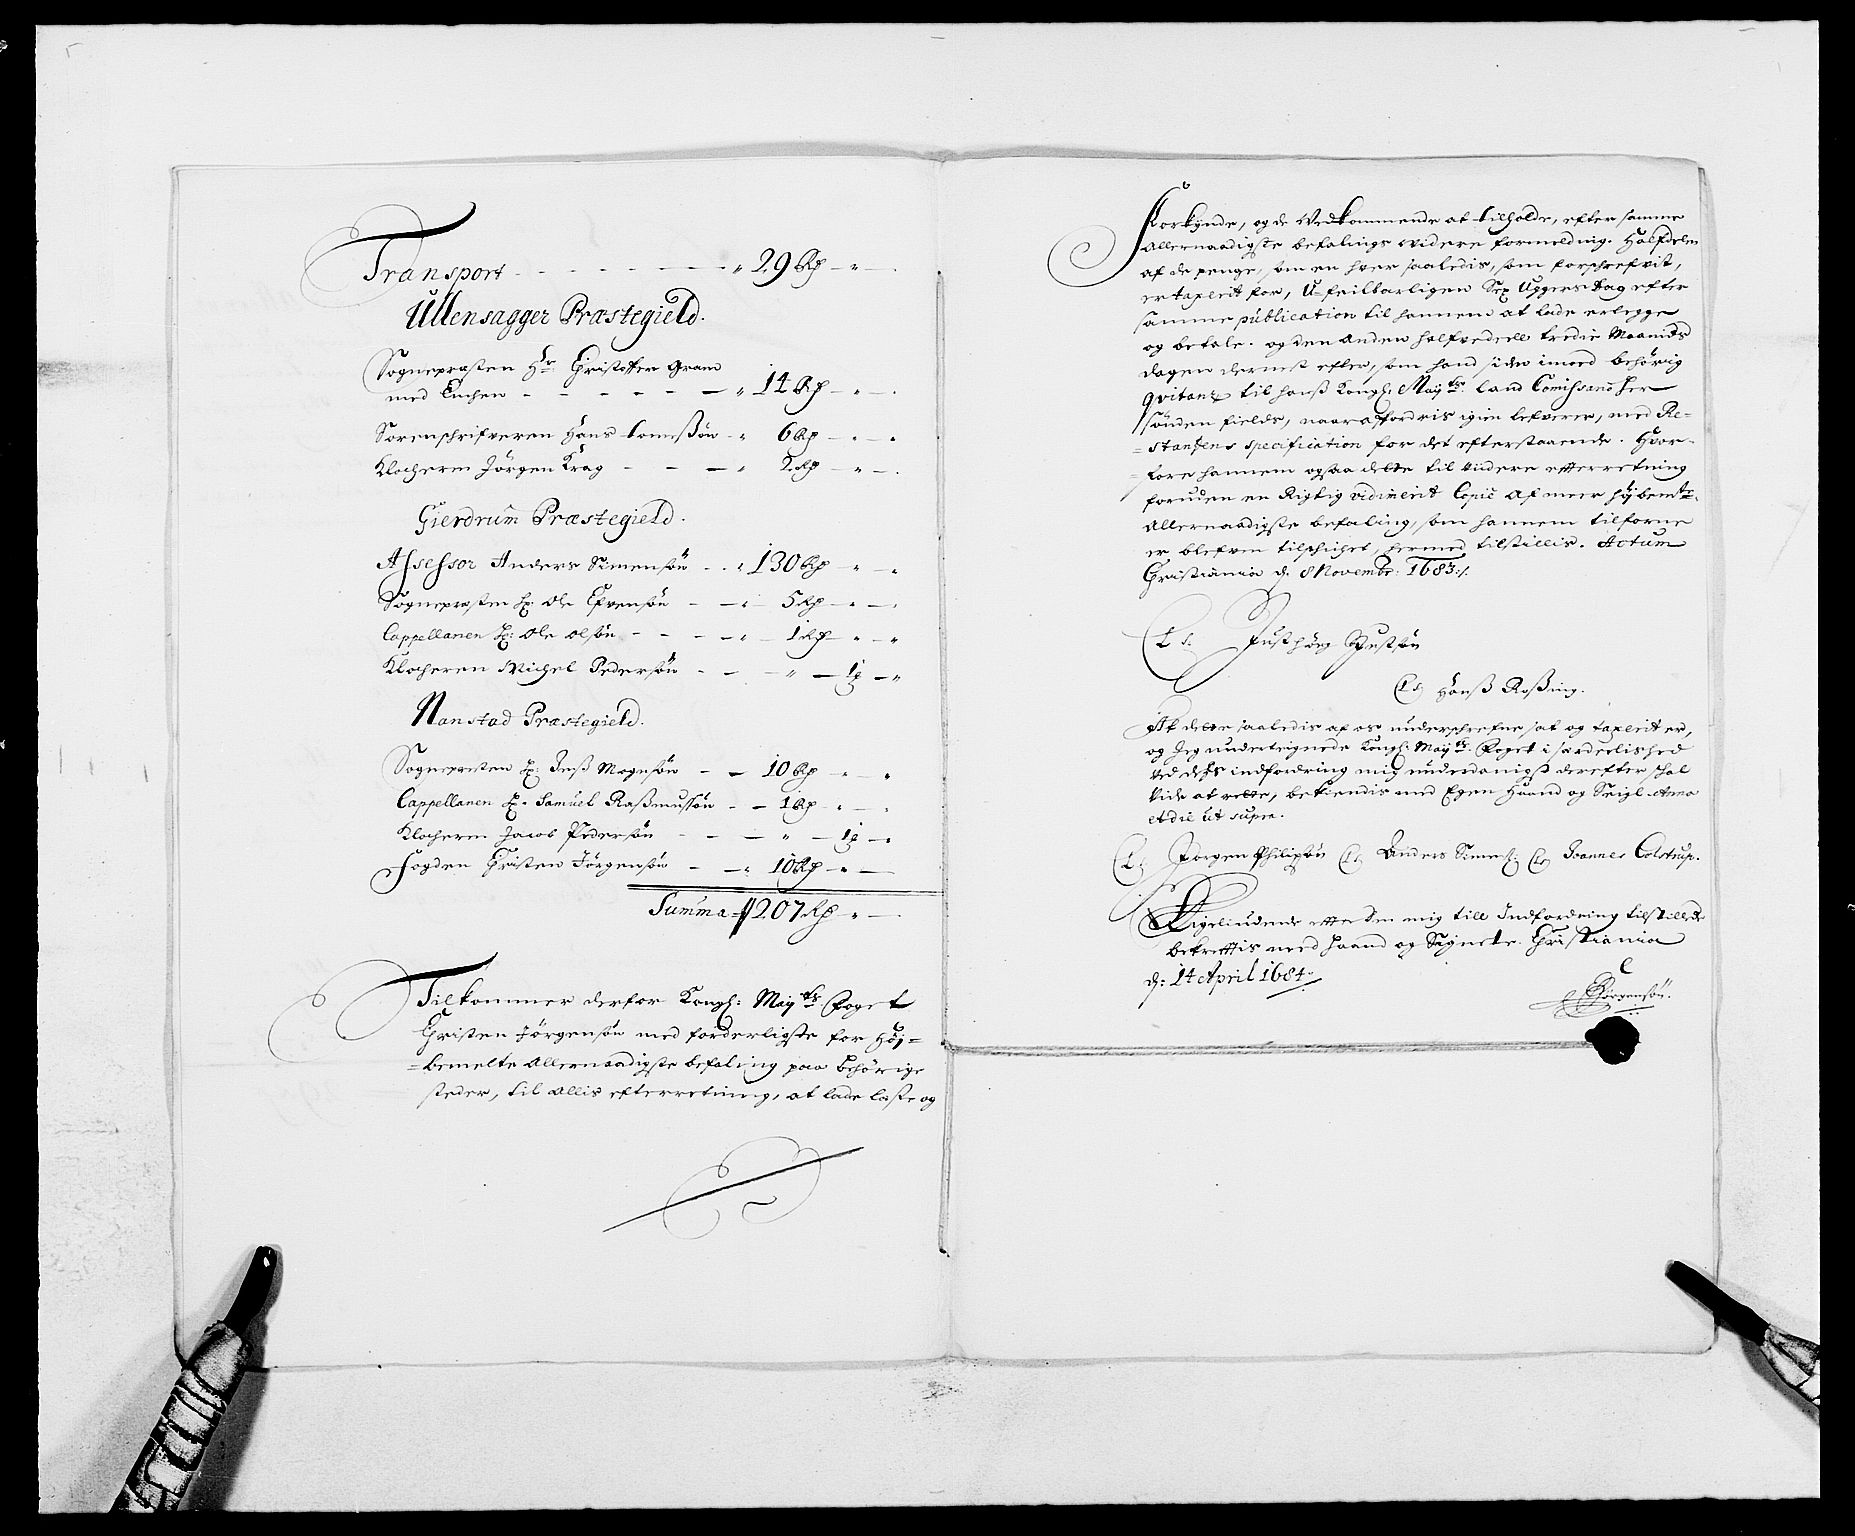 Transport - - - - - - - - " 29 Rd - " -
Ullensagger Præstegield.
Sognepræsten Hr: Christoffer Gram
med Enchen - - - - - - " 14 Rd - " -
Sorenschrifveren Hans - " 6 Rd - " - "
Klocheren Jörgen Krag - - - " 2 Rd - " -
Gierdrum Præstegield.
Assessor Anders Simensön - - " 130 Rd - " - "
Sognepræsten Hr: Ole Efvensön - - " - 5 Rd - " - "
Cappellanen Hr: Ole Olsön - - - - " - 1 Rd - " - "
Klocheren Michel Pedersön - - - " - 1 - "
Nanstad Præstegield.
Sognepræsten Hr: Jenß Mognsön - - 10 Rd - " - "
Cappellanen Hr. Samuel Raßmussön - - 1 Rd - " - "
Klocheren Jacob Pedersön - - - " - 1 - "
Fogden Christen Jörgensön - - " 10 Rd - " -
Summa 207 Rd - " -
Tilkommer derfor Kongl: Mayts. Foget
Christen Jörgensön med forderligste for Höy-
-bemelte Allernaadigste befaling paa behörige
steder, til Allis efterretning, at lade læse og
Forkynde, og de Vedkommende at tilholde, efter samme
Allernaadigste befalings videre formelding. Halfdelen
af de penge, som en hver saaledis, som forschrefvit,
er taxerit for, U-feilbarligen Sex Uggers dag efter
samme publication til hannem at lade erlegge
og betale. og den anden halfvedeell tredie Maanids
dagen dernest efter, som hand siden imod behörig
qvitantz til hanß Kongl: Mayts. Land Comissario her
sönden fields, naar affordris igien lefverer, med Re-
-stantzens specification for det efterstaaende. Hvor-
-fore hannem ogsaa dette til videre efterretning
foruden en Rigtig vidimerit Copie af meer höybemte.
Allernaadigste befaling, som hannem tilforne
er blefven tilschichet, hermed tilstillis. Actum
Christiania d. 8 Novembr: 1683 ./.
L S. Justsön
L S Hanß Roßing.
At dette saaledis af os underschrefne sat og taxerit er,
og Jeg undertegnede Kongl: Mayts. Foget i særdelished
ved dets indfordring mig underdanigst derefter schal
vide at rette, bekiendis med Egen Haand og Seigl. Anno
et die ut supra.
L S Jörgen Philipsön LS Anders Simens: LS Joannes Colstrup.
Ligeliudende efter den mig till Indfordring tilstillede
bekreftis med Haand og Signete. Christiania
d: 14 April 1684.
C Jörgensön.